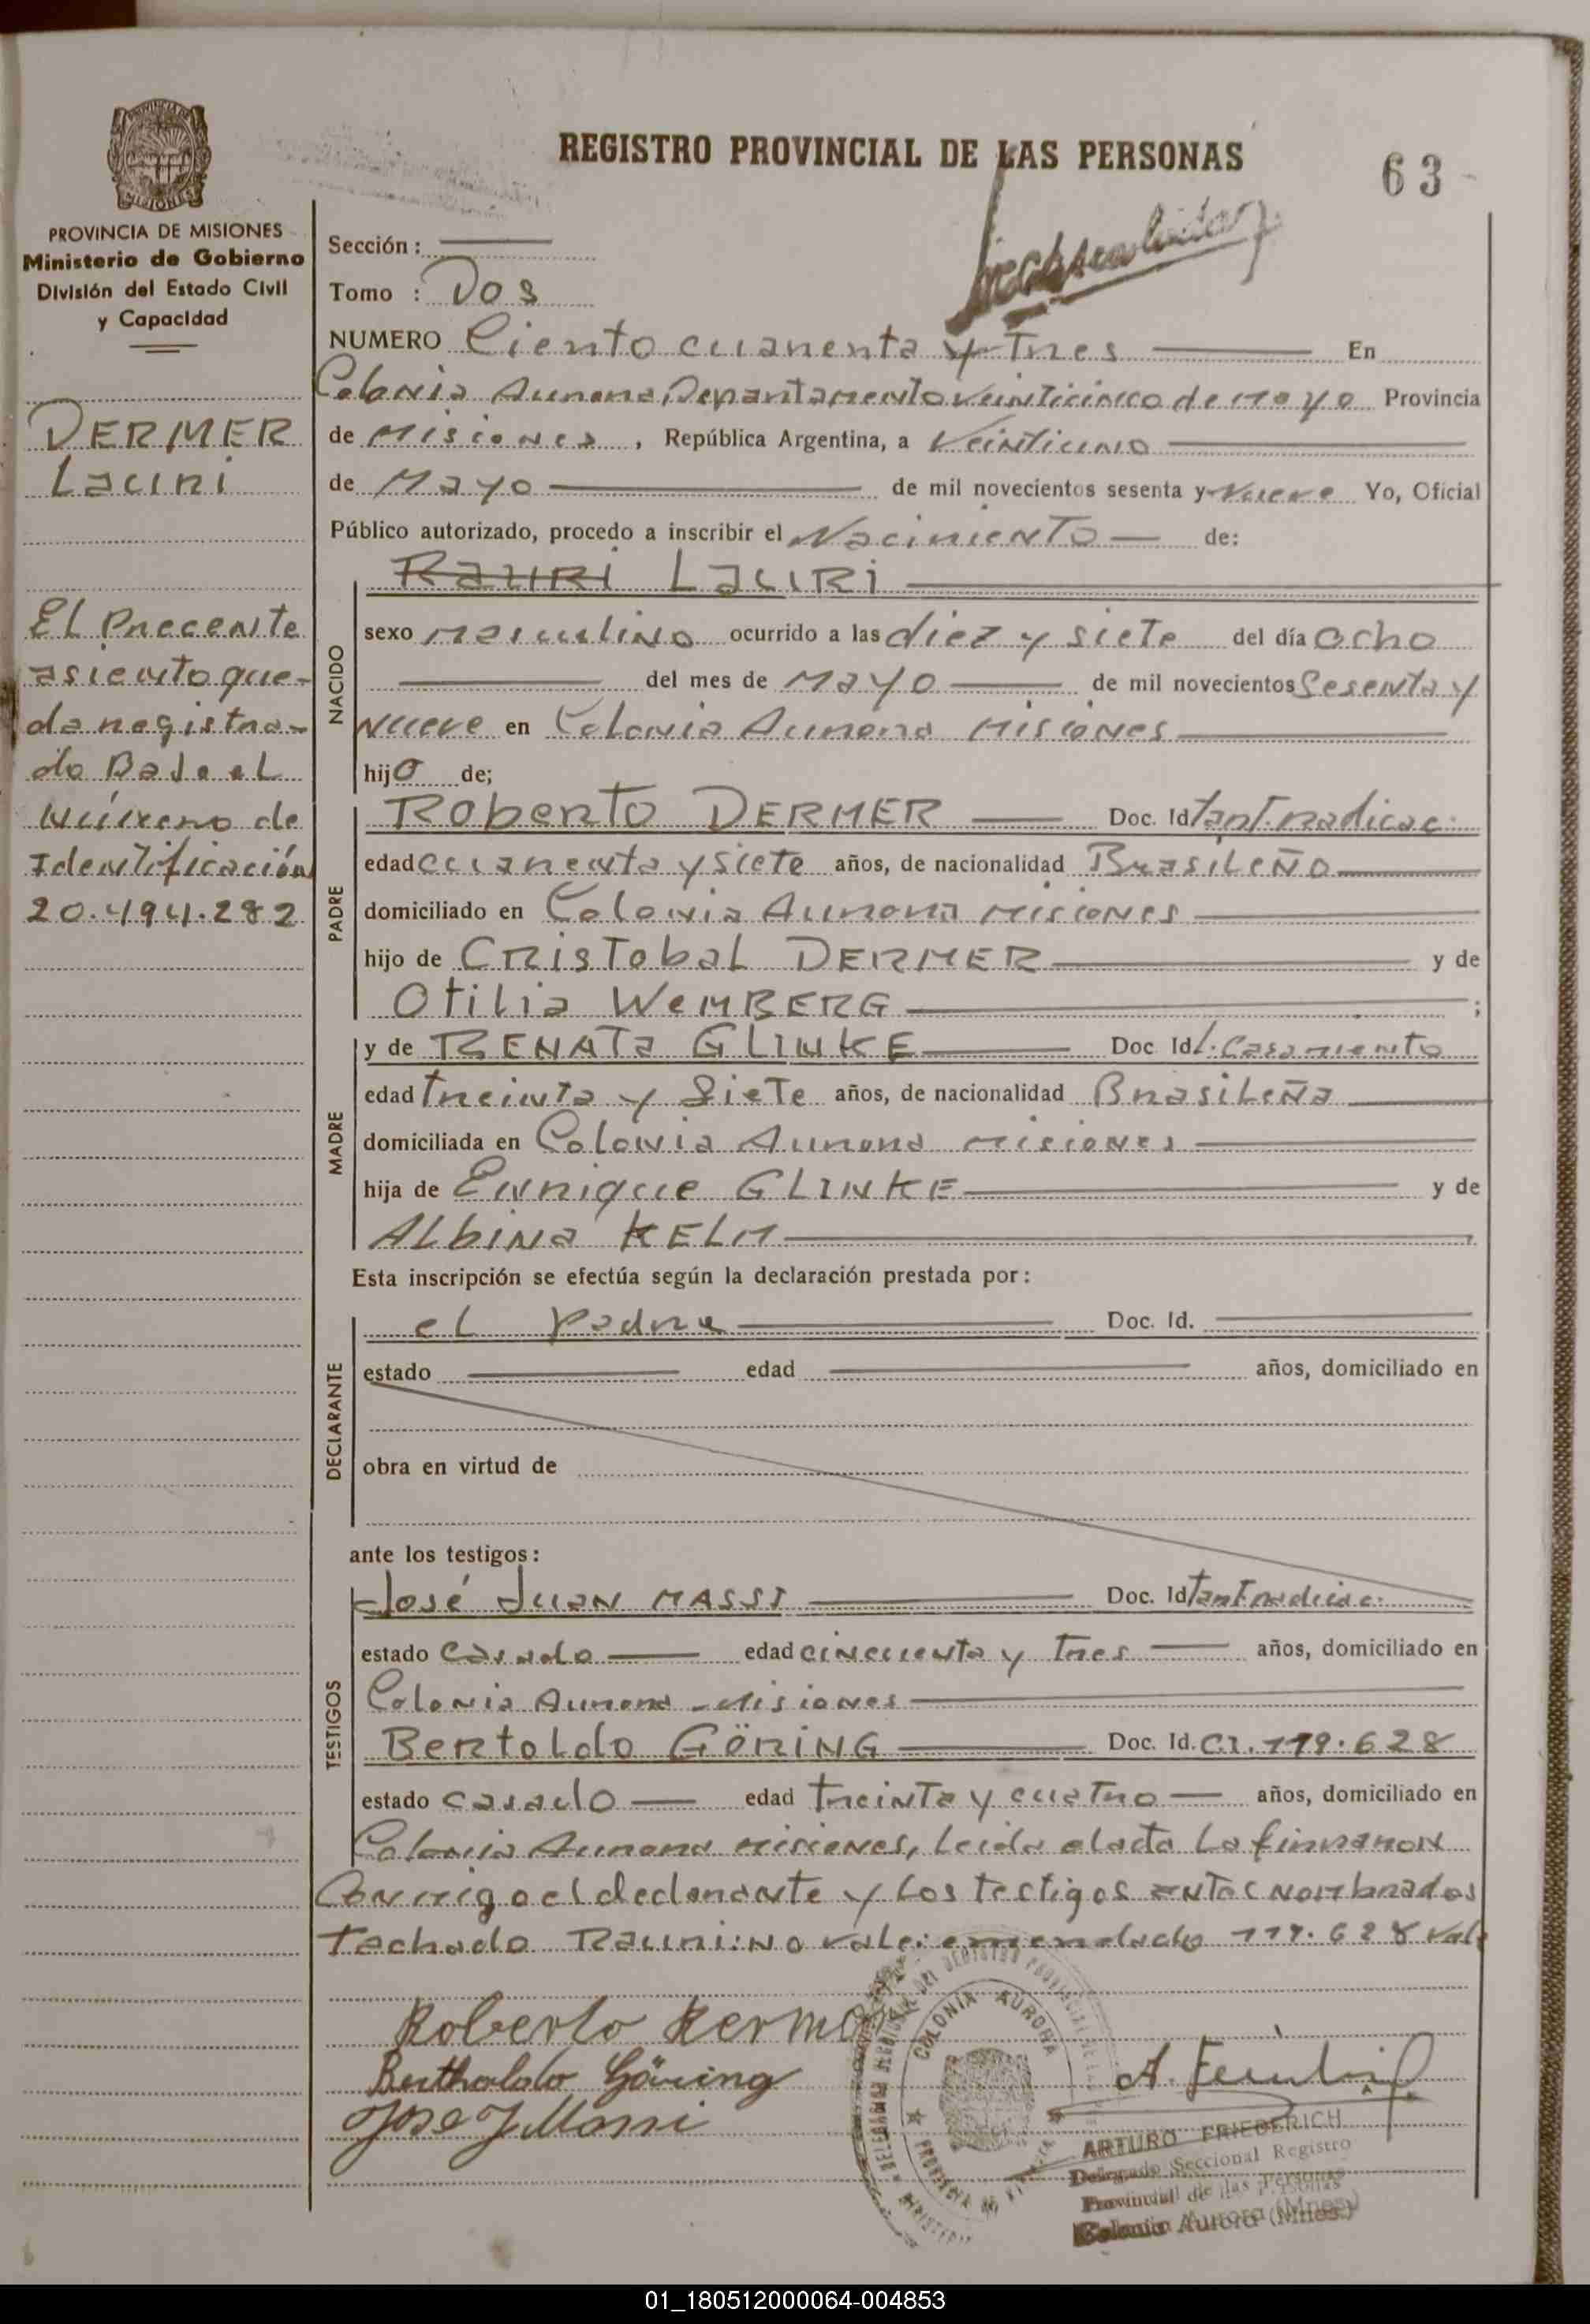 REGISTRO PROVINCIAL DE LAS PERSONAS
63
PROVINCIA DE MISIONES
Ministerio de Gobierno
División del Estado Civil
y Capacidad
DERMER
Lauri
El Precente
asiento que-
da registra-
do Bajo el
Número de
Identificación
20.494.282
Sección :
Tomo : Dos
NUMERO Ciento cuarenta y Tres En
Colonia Aurora, Departamento Veinticinco de Mayo Provincia
de Misiones, República Argentina, a Veintiuno
de Mayo de mil novecientos sesenta y Nueve Yo, Oficial
Público autorizado, procedo a inscribir el Nacimiento de:
NACIDO
Rauri Lauri
sexo Masculino ocurrido a las diez y siete del día ocho
del mes de Mayo de mil novecientos Sesenta y
Nueve en Colonia Aurora Misiones
hijo de;
PADRE
Roberto DERMER Doc. Id tant. radicac.
edad cuarenta y siete años, de nacionalidad Brasileño
domiciliado en Colonia Aurora Misiones
hijo de Cristobal DERMER y de
Otilia WeMBERG ;
MADRE
y de RENATa GLINKE Doc. Id L. Casamiento
edad treinta y Siete años, de nacionalidad Brasileña
domiciliada en Colonia Aurora Misiones
hija de Enrique GLINKE y de
Albina KELM
Esta inscripción se efectúa según la declaración prestada por:
DECLARANTE
el Padre Doc. Id.
estado edad años, domiciliado en
obra en virtud de
ante los testigos:
TESTIGOS
José Juan MASSI Doc. Id tant radicac.
estado Casado edad cincuenta y Tres años, domiciliado en
Colonia Aurora - Misiones
Bertoldo GÖRING Doc. Id. CI. 119.628
estado casado edad treinta y cuatro años, domiciliado en
Colonia Aurora Misiones, Leida el acta La firmaron
Conmigo el declarante y Los testigos antes nombrados
Tachado Rauri: No vale: emendado 119.628 Vale
Roberto
Bertholdo Göring
Jose J Massi
COLONIA AURORA
ARTURO FRIEDERICH
Delegado Seccional Registro
Provincial de las Personas
Colonia Aurora (Mnes.)
01_180512000064-004853